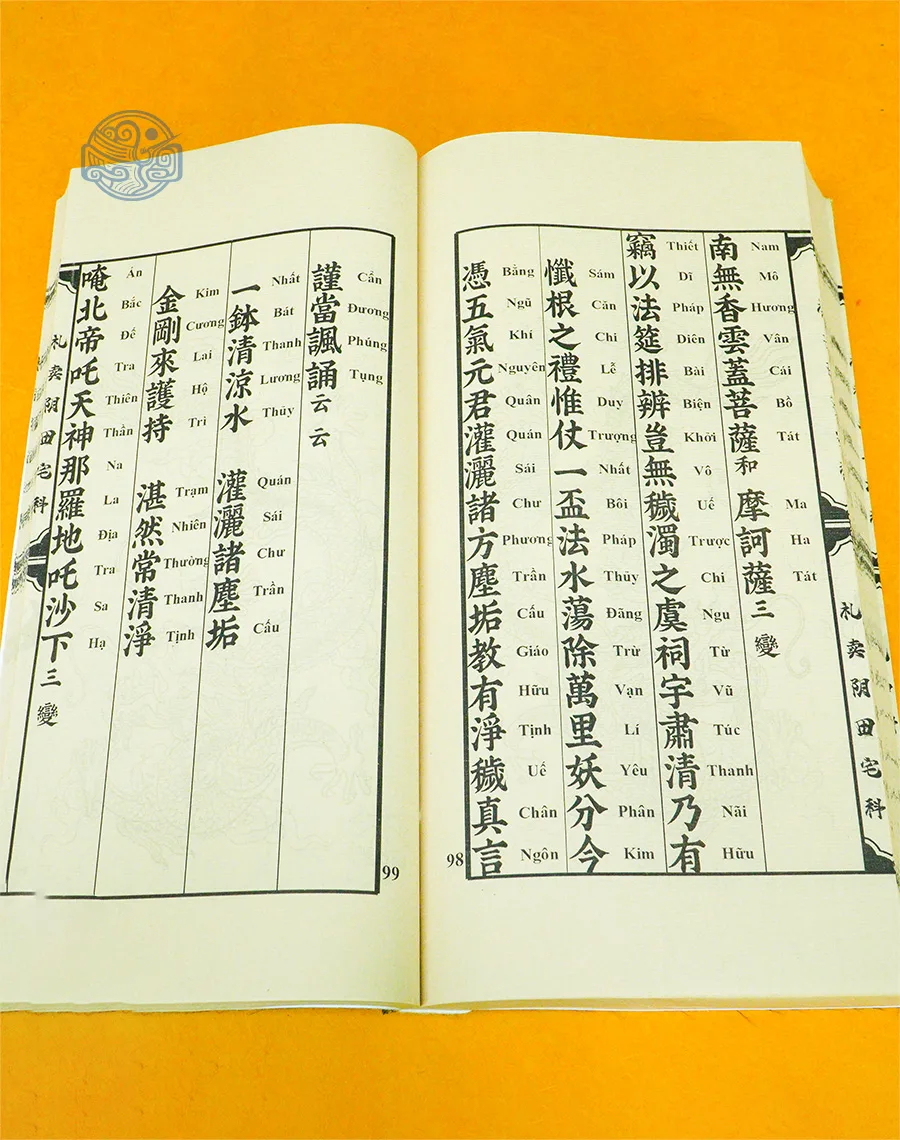 礼卖阴田宅科
南無香雲蓋菩薩和 摩訶薩三變
Nam Mô Hương Vân Cái Bồ Tát Ma Ha Tát
竊以法筵排辨豈無穢濁之虞祠宇肅清乃有
Thiết Dĩ Pháp Diên Bài Biện Khởi Vô Uế Trược Chi Ngu Từ Vũ Túc Thanh Nãi Hữu
懺根之禮惟仗一盃法水蕩除萬里妖分今
Sám Căn Chi Lễ Duy Trượng Nhất Bôi Pháp Thủy Đãng Trừ Vạn Lí Yêu Phân Kim
憑五氣元君灌灑諸方塵垢教有淨穢真言
Bằng Ngũ Khí Nguyên Quân Quán Sái Chư Phương Trần Cấu Giáo Hữu Tịnh Uế Chân Ngôn
98
謹當諷誦云云
Cẩn Đương Phúng Tụng
一鉢清涼水 灌灑諸塵垢
Nhất Bát Thanh Lương Thủy Quán Sái Chư Trần Cấu
金剛來護持 湛然常清淨
Kim Cương Lai Hộ Trì Trạm Nhiên Thường Thanh Tịnh
唵北帝吒天神那羅地吒沙下三變
Án Bắc Đế Tra Thiên Thần Na La Địa Tra Sa Hạ
礼卖阴田宅科
99